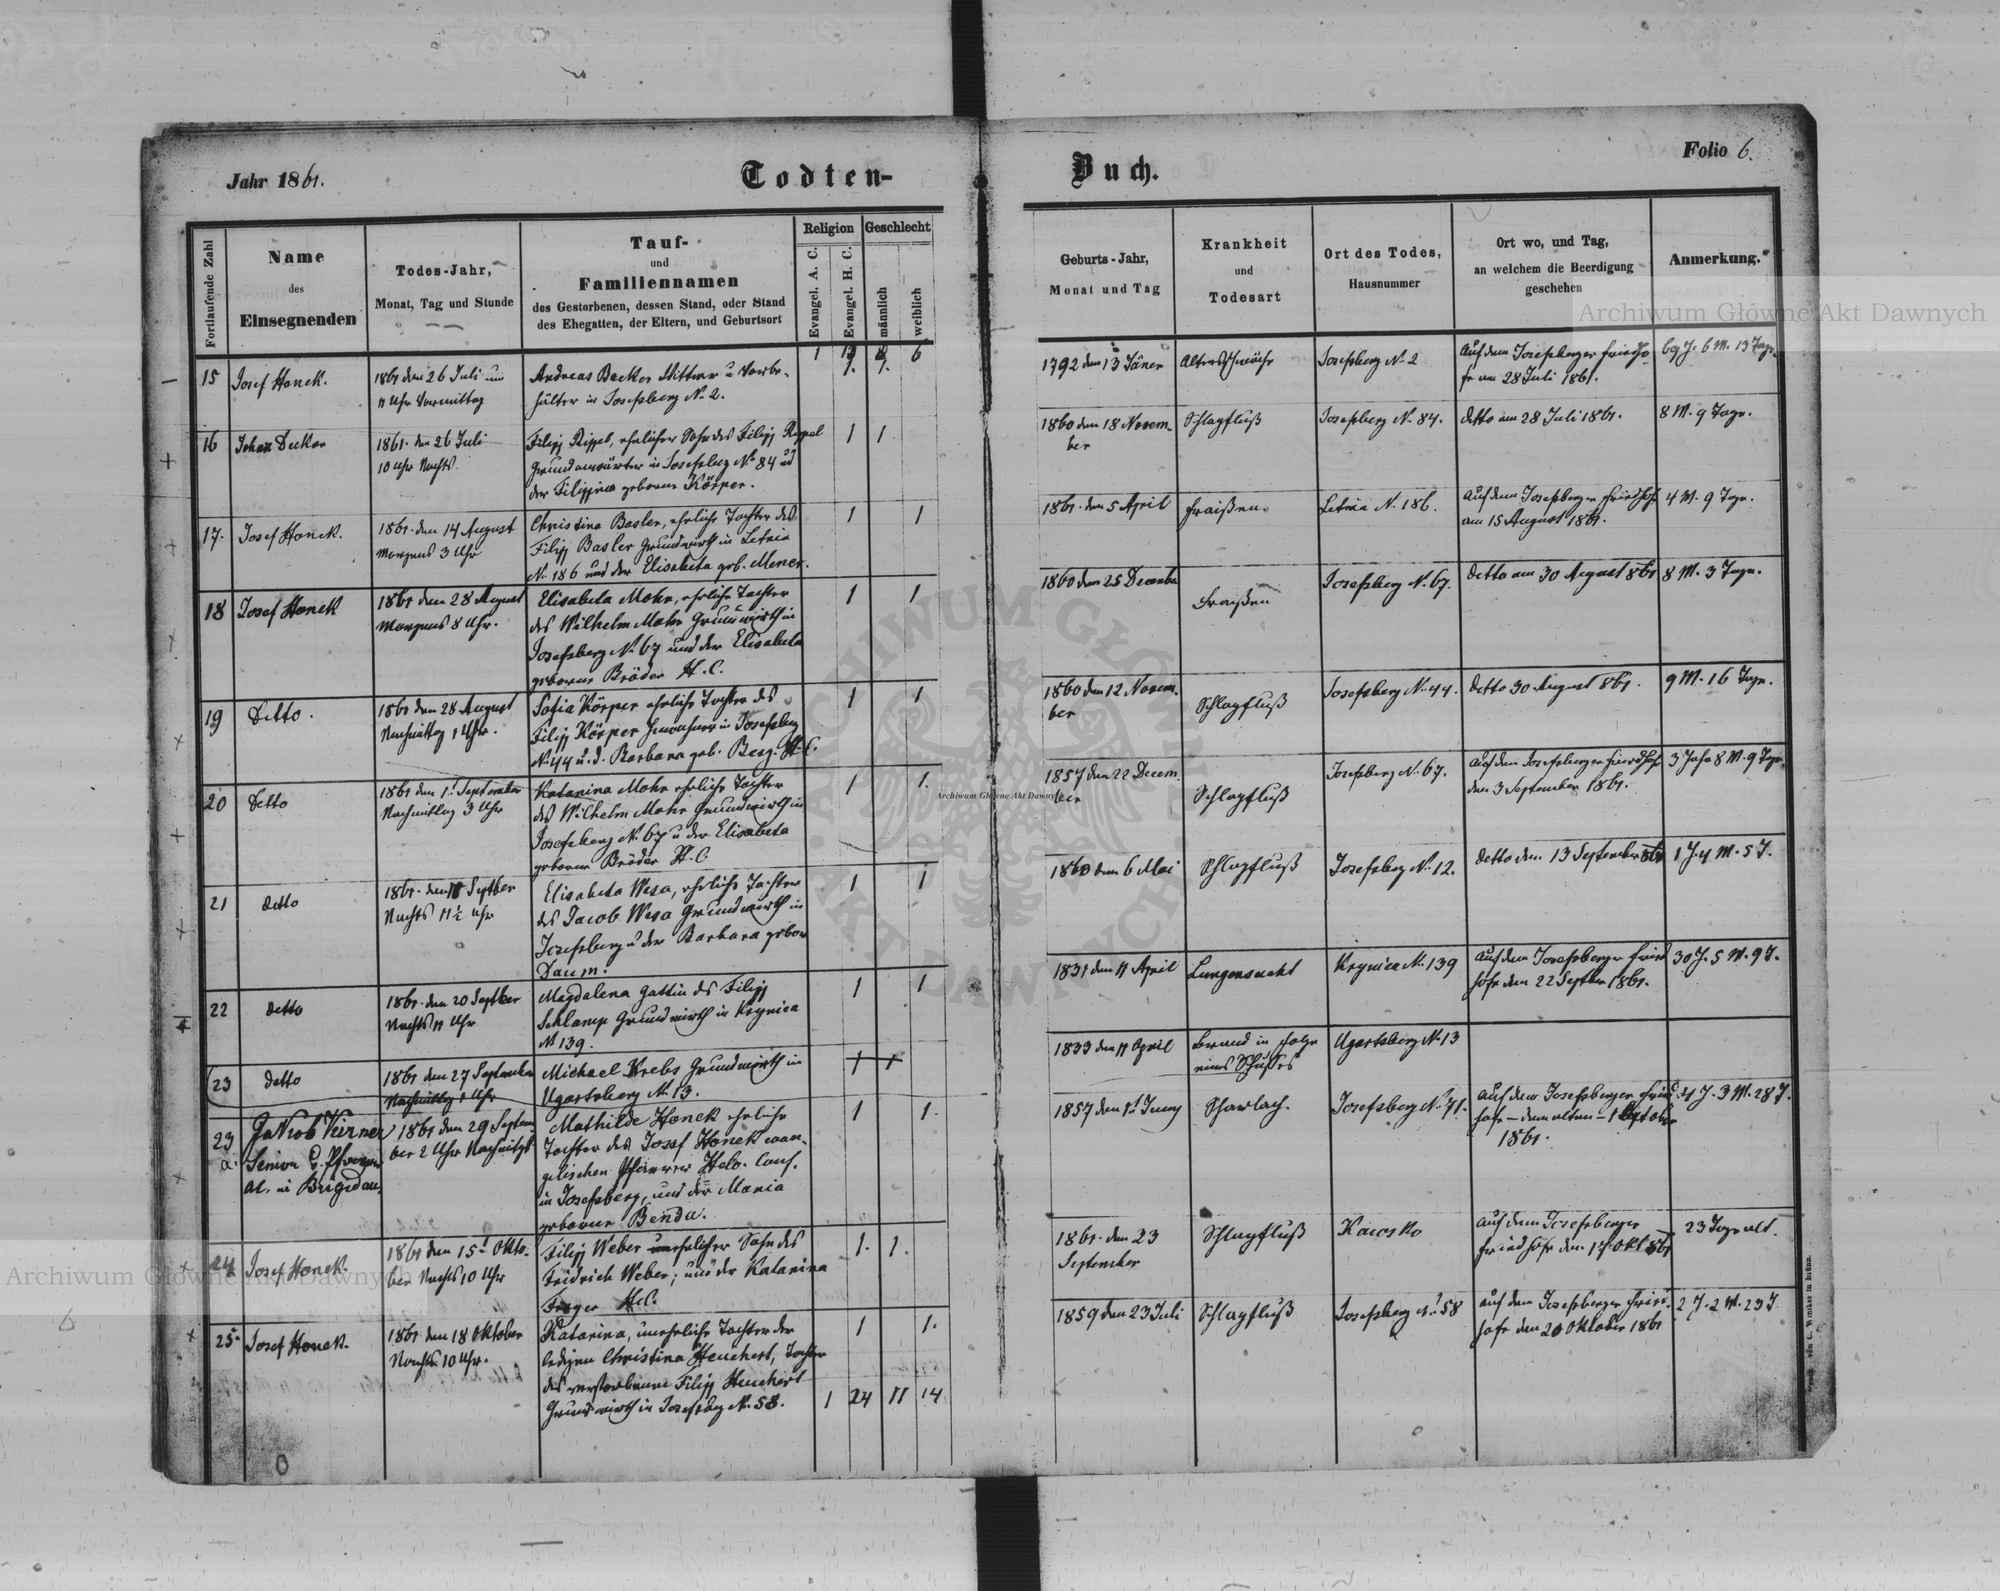 Jahr 1861.
Todten-
Buch.
Folio 6.
Fortlaufende Zahl
Name
des
Einsegnenden
Todes-Jahr,
Monat, Tag und Stunde
Tauf-
und
Familiennamen
des Gestorbenen, dessen Stand, oder Stand
des Ehegatten, der Eltern, und Geburtsort
Religion
Evangel. A. C.
Evangel. H. C.
Geschlecht
männlich
weiblich
Geburts-Jahr,
Monat und Tag
Krankheit
und
Todesart
Ort des Todes,
Hausnummer
Ort wo, und Tag,
an welchem die Beerdigung
geschehen
Anmerkung.
15
Josef Honek.
1861 den 26 Juli um
11 Uhr Vormittag
Andreas Becker Wittwer u
in Josefsberg No 2.
1792 den 13 Jäner
Altersschwäche
Josefsberg No 2
Auf dem Josefsberger Friedho-
fe am 28 Juli 1861.
69 J. 6 M. 13 Tage.
16
Johann Decker
1861. den 26 Juli
10 Uhr Nachts.
Filipp Rippel, ehelicher Sohn des Filipp Rippel
in Josefsberg No 84 und
der Filippina geborne Körper.
1 1
1860 den 18 Novem-
ber
Schlagfluß
Josefsberg No. 84.
detto am 28 Juli 1861.
8 M. 9 Tage.
17.
Josef Honek.
1861. den 14 August
Morgens 3 Uhr
Christina Basler, eheliche Tochter des
Filipp Basler Grundwirth in Letnia
No 186 und der Elisabeta geb. Mener.
1 1
1861. den 5 April
Fraißen.
Letnia No. 186.
Auf dem Josefsberger Friedhof
am 15 August 1861.
4 M. 9 Tage.
18
Josef Honek
1861 den 28 August
Morgens 8 Uhr.
Elisabeta Mohr, eheliche Tochter
des Wilhelm Mohr Grundwirth in
Josefsberg No 67 und der Elisabeta
geborne Bröder H. C.
1 1
1860 den 25 Decembe
Fraißen
Josefsberg No. 67.
detto am 30 August 861
8 M. 3 Tage.
19
Detto.
1861 den 28 August
Nachmittag 1 Uhr.
Sofia Körper eheliche Tochter des
Filipp Körper Einwohner in Josefsberg
No 44 u. d. Barbara geb. Berg. H. C.
1 1
1860 den 12 Novem-
ber
Schlagfluß
Josefsberg No. 44.
detto 30 August 861.
9 M. 16 Tage.
20
Detto
1861 den 1. September
Nachmittag 3 Uhr
Katarina Mohr eheliche Tochter
des Wilhelm Mohr Grundwirth in
Josefsberg No. 67 u der Elisabeta
geborne Bröder H. C.
1 1.
1857 den 22 Decem-
ber
Schlagfluß
Josefsberg No. 67.
auf dem Josefsberger Friedhof
den 3 September 1861.
3 Jahr 8 M. 9 Tage.
21
detto
1861. den 11 Septber
Nachts 11½ Uhr
Elisabeta Wesa, eheliche Tochter
des Jacob Wesa Grundwirth in
Josefsberg u der Barbara gebor
Daum.
1 1
1860 den 6 Mai
Schlagfluß
Josefsberg No. 12.
detto den 13 September 861
1 J. 4 M. 5 T.
22
detto
1861. den 20 Septber
Nachts 11 Uhr
Magdalena Gattin des Filipp
Schlamp Grundwirth in Krynica
No 139.
1 1
1831 den 11 April
Lungensucht
Krynica No. 139
auf dem Josefsberger Fried
hofe den 22 Septber 1861.
30 J. 5 M. 9 T.
23
detto
1861 den 27 September
Nachmittag 1 Uhr
Michael Krebs Grundwirth in
Ugartsberg No. 13.
1 1
1833 den 11 April
Brand in Folge
eines Schußes
Ugartsberg No 13
23
a.
Jakob Kirner
Senior u. Pfarrer
AC. in Brigidau.
1861 den 29 Septem-
ber 2 Uhr Nachmittgs
Mathilde Honek eheliche
Tochter des Josef Honek evan-
gelischen Pfarrer Helv. Conf.
in Josefsberg, und der Maria
geborne Benda.
1 1.
1857 den 1t Juny
Scharlach.
Josefsberg No. 71.
auf dem Josefsberger Fried-
hofe - dem alten - 1 Octobe
1861.
4 J. 3 M. 28 T.
24
Josef Honek.
1861 den 15t Okto-
ber Nachts 10 Uhr
Filipp Weber unehelicher Sohn des
Fridrich Weber; und der Katarina
H. C.
1. 1.
1861. den 23
September
Schlagfluß
auf dem Josefsberger
Friedhofe den 17 Okt 861
23 Tage alt.
25
Josef Honek.
1861. den 18 Oktober
Nachts 10 Uhr.
Katarina, uneheliche Tochter der
ledigen Christina Heuchert, Tochter
des verstorbenen Filipp Heuchert
Grundwirth in Josefsberg No. 58.
1 1.
1 24 11 14
1859 den 23 Juli
Schlagfluß
Josefsberg No 58
auf dem Josefsberger Fried-
hofe den 20 Oktober 1861
2 J. 2 M. 23 T.
Archiwum Główne Akt Dawnych
Archiwum Główne Akt Dawnych
Archiwum Główne Akt Dawnych
ARCHIWUM GŁÓWNE AKT DAWNYCH